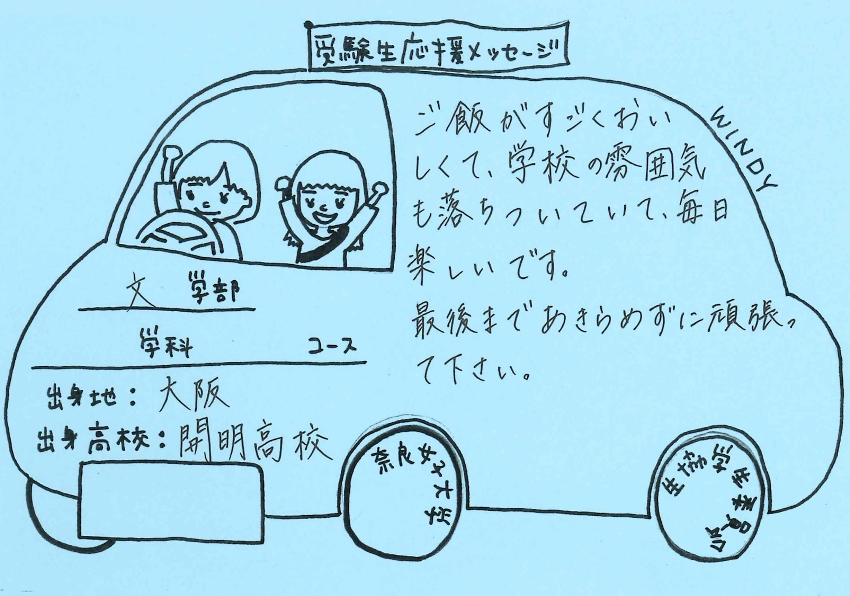 受験生応援メッセージ
WINDY
ご飯がすごくおい
しくて、学校の雰囲気
も落ちついていて、毎日
楽しいです。
最後まであきらめずに頑張っ
て下さい。
文 学部
学科 コース
出身地：大阪
出身高校：開明高校
奈良女子大学
生協学生委員会